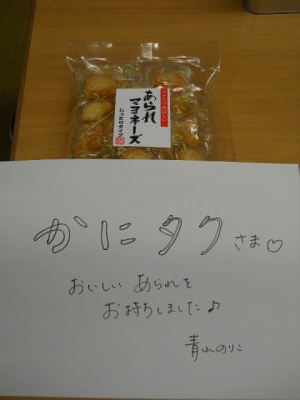 あられ
マヨネーズ
かにタクさま♡
おいしいあられを
お持ちしました♪
青山のりこ